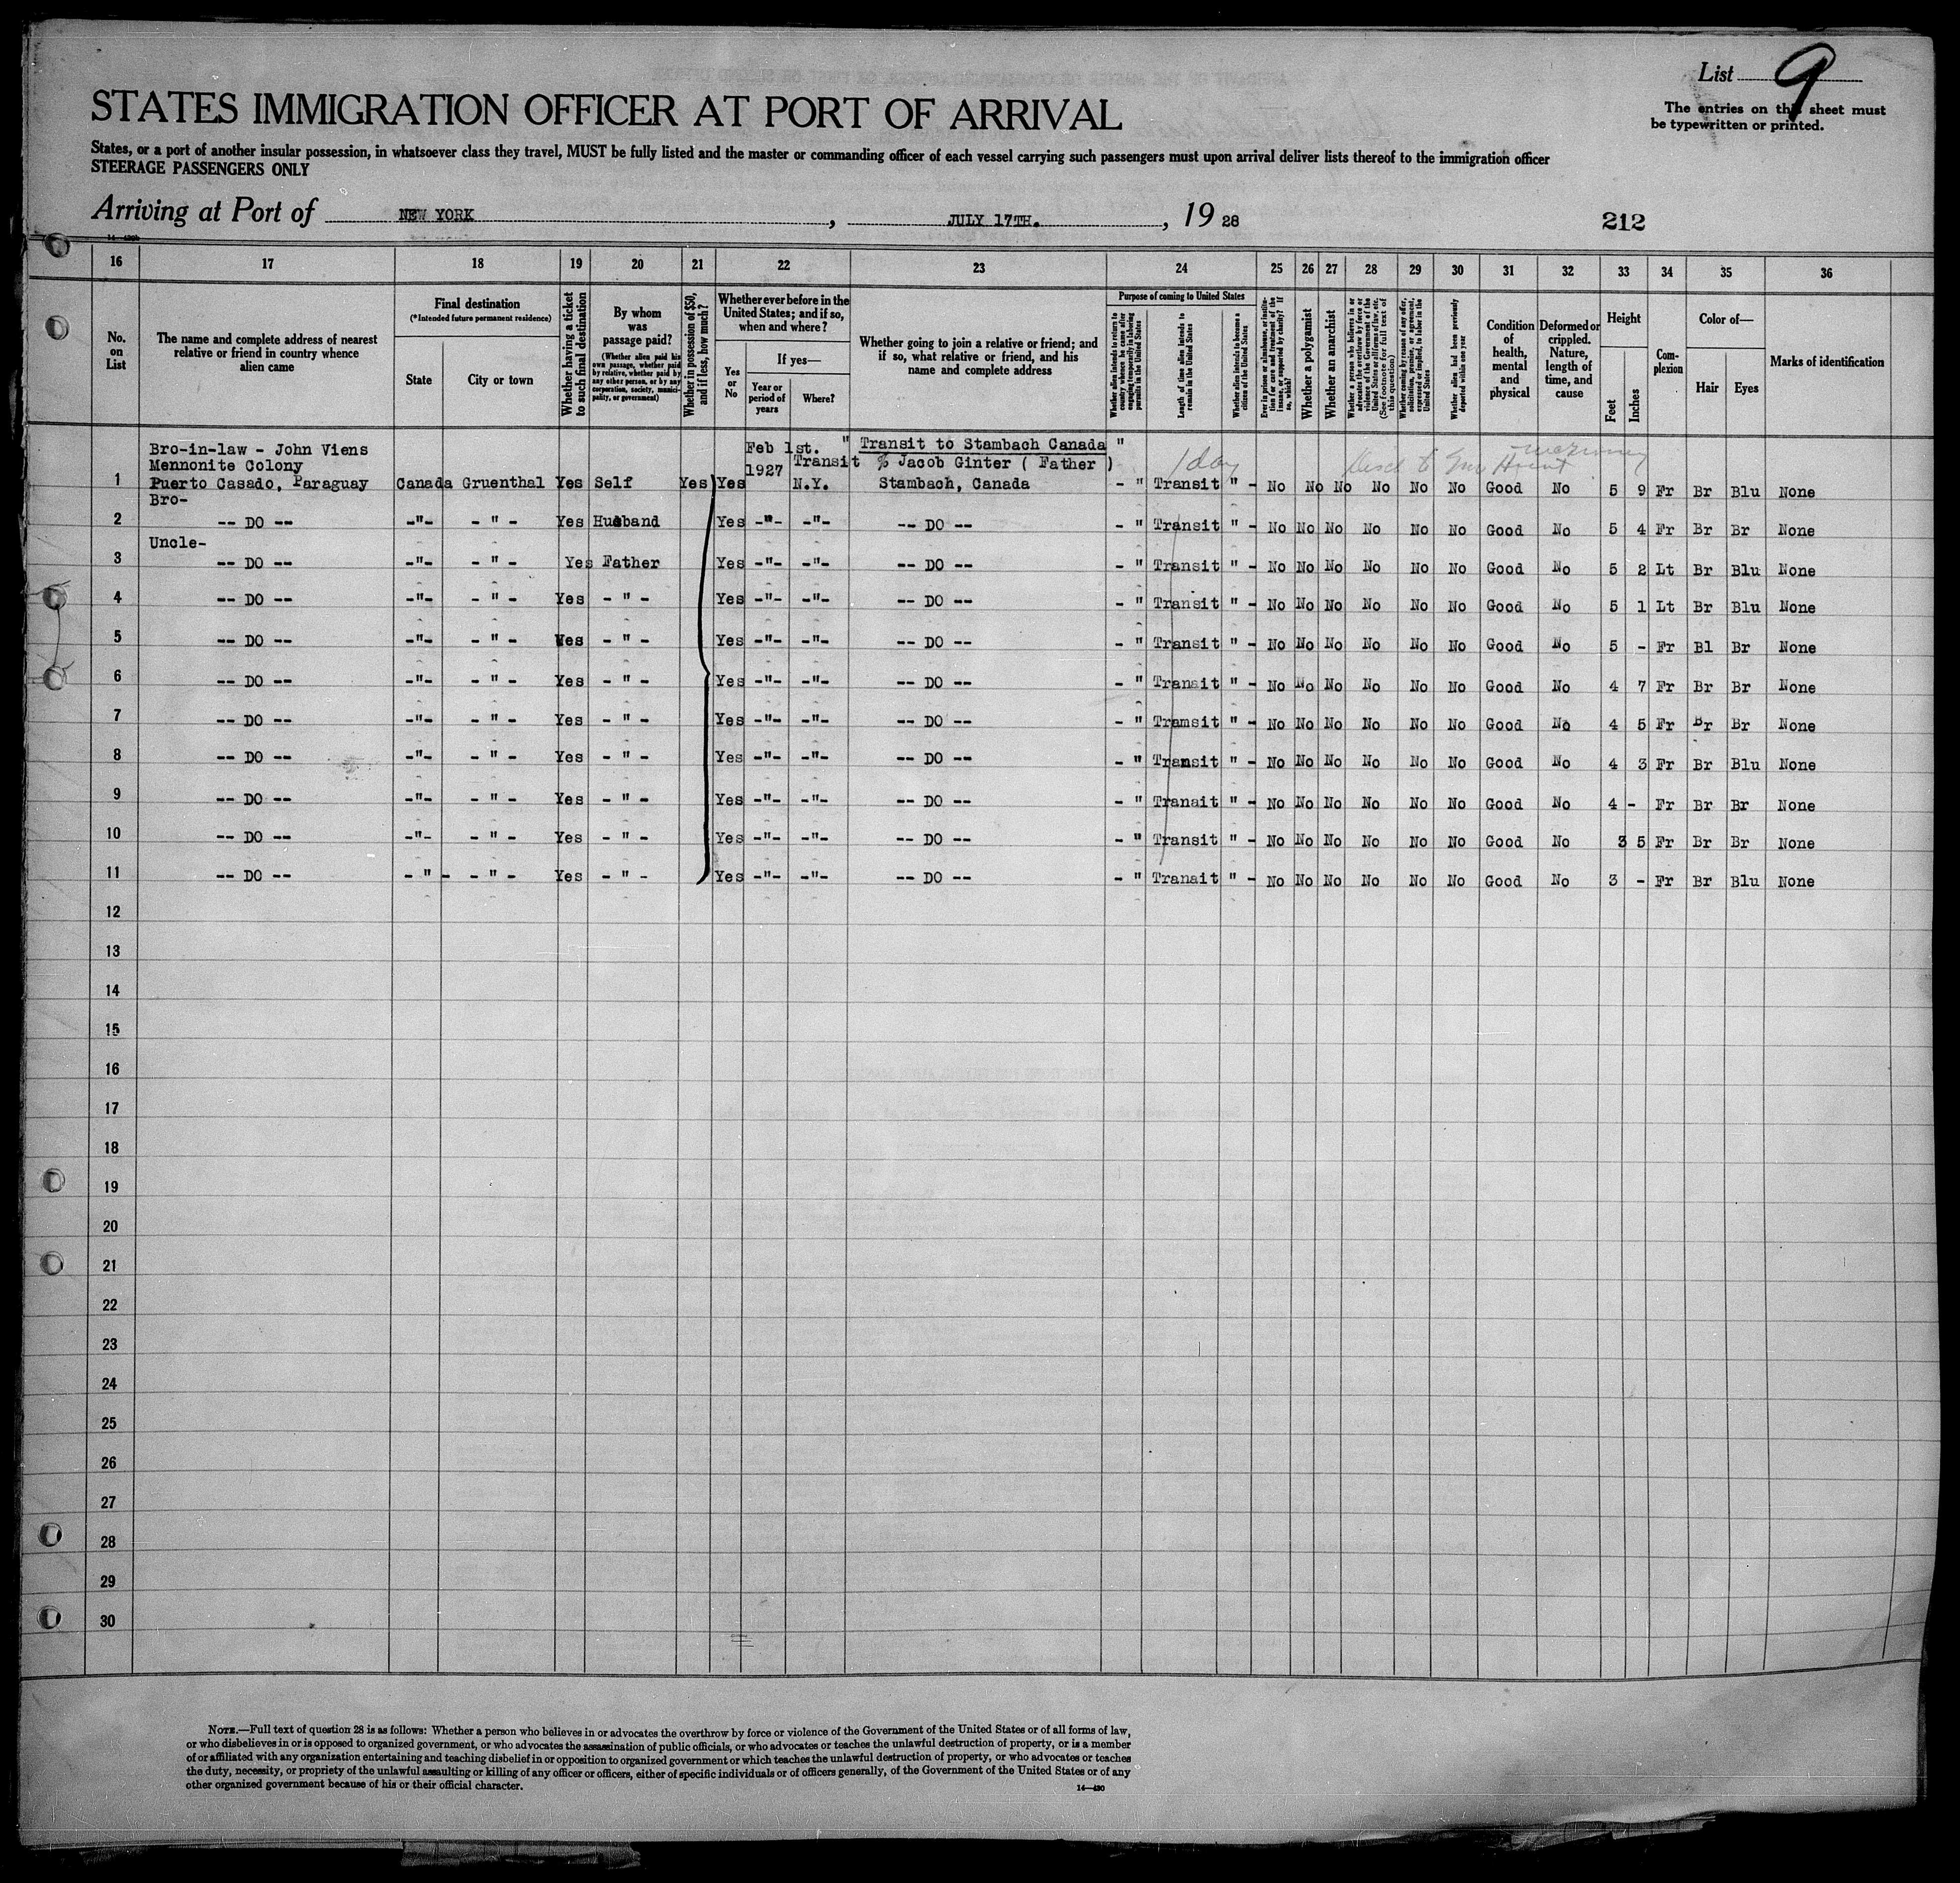 List 9
The entries on this sheet must
be typewritten or printed.
STATES IMMIGRATION OFFICER AT PORT OF ARRIVAL
States, or a port of another insular possession, in whatsoever class they travel, MUST be fully listed and the master or commanding officer of each vessel carrying such passengers must upon arrival deliver lists thereof to the immigration officer
STEERAGE PASSENGERS ONLY
Arriving at Port of NEW YORK, JULY 17TH., 19 28
212
16 17 18 19 20 21 22 23 24 25 26 27 28 29 30 31 32 33 34 35 36
No. on List
The name and complete address of nearest relative or friend in country whence alien came
Final destination
(*Intended future permanent residence)
State
City or town
Whether having a ticket to such final destination
By whom was passage paid?
(Whether alien paid his own passage, whether paid by relative, whether paid by any other person, or by any corporation, society, municipality, or government)
Whether in possession of $50, and if less, how much?
Whether ever before in the United States; and if so, when and where?
Yes or No
If yes—
Year or period of years
Where?
Whether going to join a relative or friend; and if so, what relative or friend, and his name and complete address
Purpose of coming to United States
Whether alien intends to return to country whence he came after engaging temporarily in laboring pursuits in the United States
Length of time alien intends to remain in the United States
Whether alien intends to become a citizen of the United States
Ever in prison or almshouse, or institution for care and treatment of the insane, or supported by charity? If so, which?
Whether a polygamist
Whether an anarchist
Whether a person who believes in or advocates the overthrow by force or violence of the Government of the United States or all forms of law, etc. (See footnote for full text of this question)
Whether coming by reason of any offer, solicitation, promise, or agreement, expressed or implied, to labor in the United States
Whether alien had been previously deported within one year
Condition of health, mental and physical
Deformed or crippled. Nature, length of time, and cause
Height
Feet
Inches
Complexion
Color of—
Hair
Eyes
Marks of identification
Bro-in-law - John Viens Feb 1st. " Transit to Stambach Canada "
Mennonite Colony 1927 Transit % Jacob Ginter ( Father ) 1 day
1 Puerto Casado, Paraguay Canada Gruenthal Yes Self Yes Yes N.Y. Stambach, Canada - " Transit " - No No No No No No Good No 5 9 Fr Br Blu None
Bro-
2 -- DO -- -"- - " - Yes Husband Yes -"- -"- -- DO -- - " Transit " - No No No No No No Good No 5 4 Fr Br Br None
Uncle-
3 -- DO -- -"- - " - Yes Father Yes -"- -"- -- DO -- - " Transit " - No No No No No No Good No 5 2 Lt Br Blu None
4 -- DO -- -"- - " - Yes - " - Yes -"- -"- -- DO -- - " Transit " - No No No No No No Good No 5 1 Lt Br Blu None
5 -- DO -- -"- - " - Yes - " - Yes -"- -"- -- DO -- - " Transit " - No No No No No No Good No 5 - Fr Bl Br None
6 -- DO -- -"- - " - Yes - " - Yes -"- -"- -- DO -- - " Transit " - No No No No No No Good No 4 7 Fr Br Br None
7 -- DO -- -"- - " - Yes - " - Yes -"- -"- -- DO -- - " Tramsit " - No No No No No No Good No 4 5 Fr Br Br None
8 -- DO -- -"- - " - Yes - " - Yes -"- -"- -- DO -- - " Transit " - No No No No No No Good No 4 3 Fr Br Blu None
9 -- DO -- -"- - " - Yes - " - Yes -"- -"- -- DO -- - " Tranait " - No No No No No No Good No 4 - Fr Br Br None
10 -- DO -- -"- - " - Yes - " - Yes -"- -"- -- DO -- - " Transit " - No No No No No No Good No 3 5 Fr Br Br None
11 -- DO -- - " - - " - Yes - " - Yes -"- -"- -- DO -- - " Tranait " - No No No No No No Good No 3 - Fr Br Blu None
12
13
14
15
16
17
18
19
20
21
22
23
24
25
26
27
28
29
30
NOTE.—Full text of question 28 is as follows: Whether a person who believes in or advocates the overthrow by force or violence of the Government of the United States or of all forms of law,
or who disbelieves in or is opposed to organized government, or who advocates the assassination of public officials, or who advocates or teaches the unlawful destruction of property, or is a member
of or affiliated with any organization entertaining and teaching disbelief in or opposition to organized government or which teaches the unlawful destruction of property, or who advocates or teaches
the duty, necessity, or propriety of the unlawful assaulting or killing of any officer or officers, either of specific individuals or of officers generally, of the Government of the United States or of any
other organized government because of his or their official character.
14—430